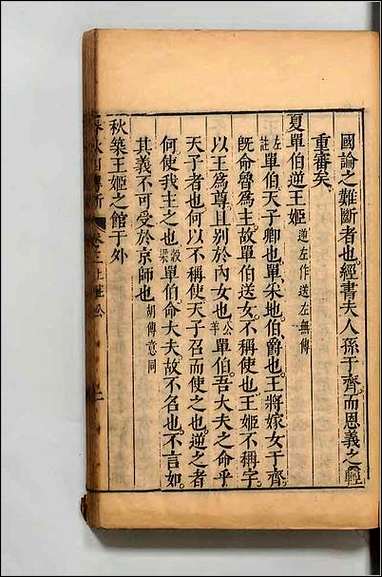 國論之難斷者也經書夫人孫于齊而恩義之輕
重審矣
夏單伯逆王姬 逆左作送左無傳
左註 單伯天子卿也單采地伯爵也王將嫁女于齊
旣命魯爲主故單伯送女不稱使也王姬不稱字
以王爲尊且別於內女也 公羊 單伯吾大夫之命乎
天子者也何以不稱使天子召而使之也逆之者
何使我主之也 穀梁 單伯命大夫故不名也不言如
其義不可受於京師也 胡傳意同
秋築王姬之館于外
春秋 傳 卷三上 莊公